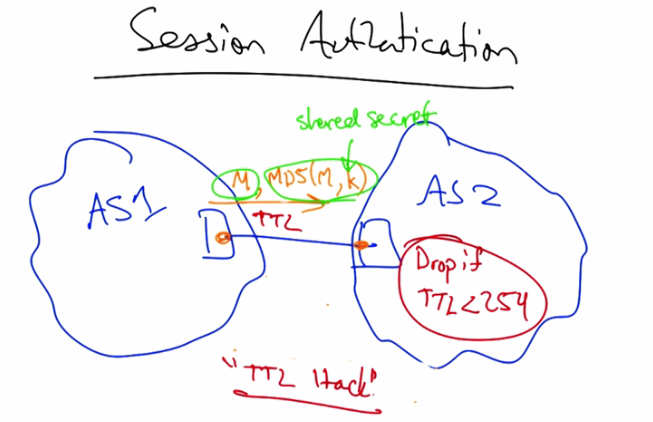 Session Authentication
shared secret
M, MD5(M, k)
AS1
TTL
AS2
Drop if
TTL<254
"TTL Hack"